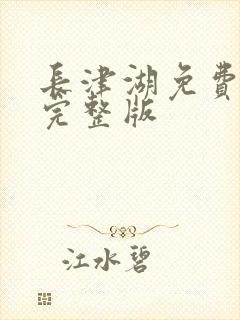 長津湖免費
完整版
江水碧